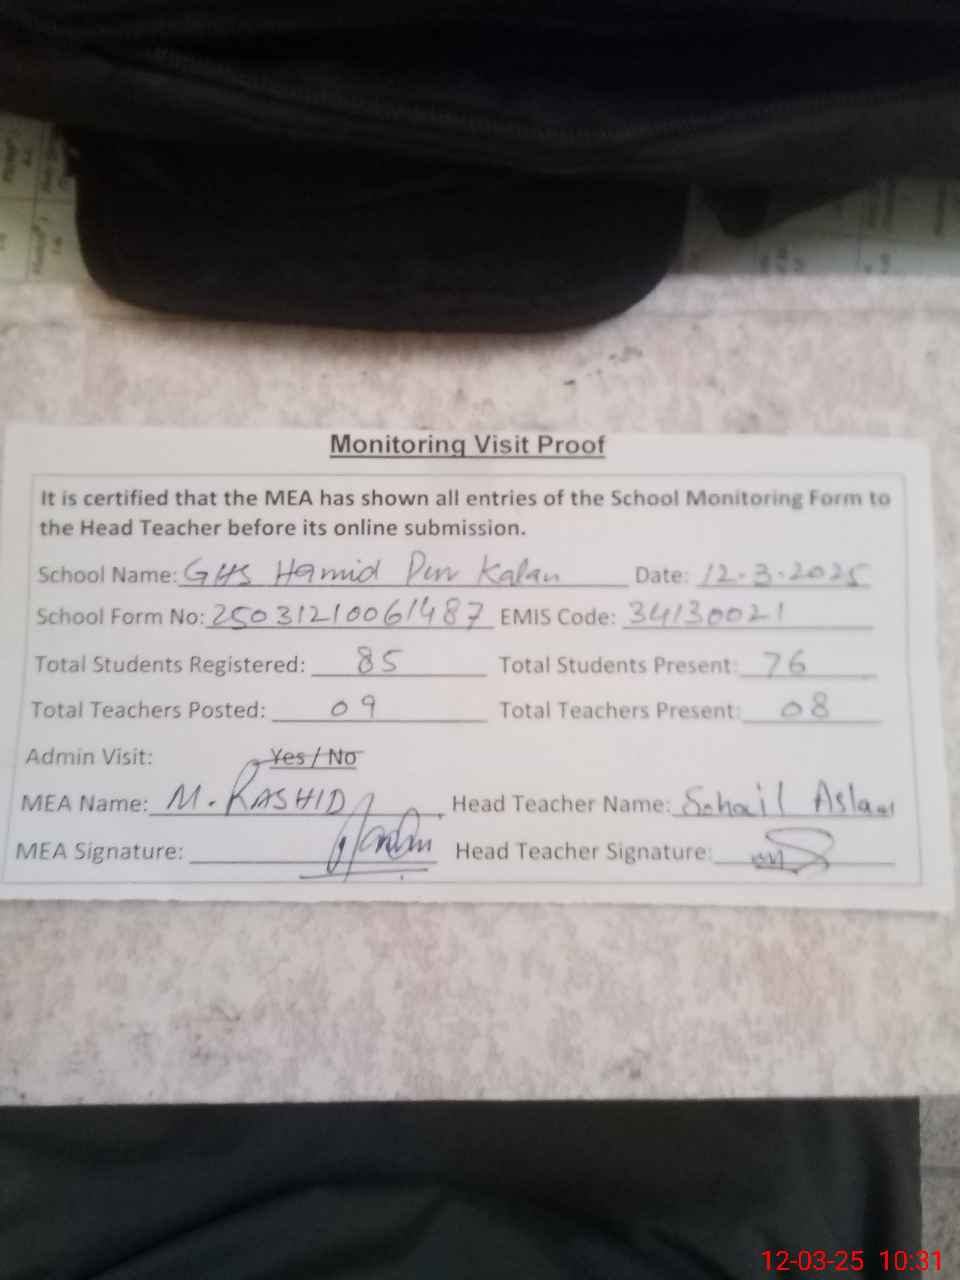 Monitoring Visit Proof
It is certified that the MEA has shown all entries of the School Monitoring Form to
the Head Teacher before its online submission.
School Name: GHS Hamid Pur Kalan Date: 12-3-2025
School Form No: 25031210061487 EMIS Code: 34130021
Total Students Registered: 85 Total Students Present: 76
Total Teachers Posted: 09 Total Teachers Present: 08
Admin Visit: Yes / No
MEA Name: M. RASHID Head Teacher Name: Sohail Aslam
MEA Signature: Head Teacher Signature:
12-03-25 10:31